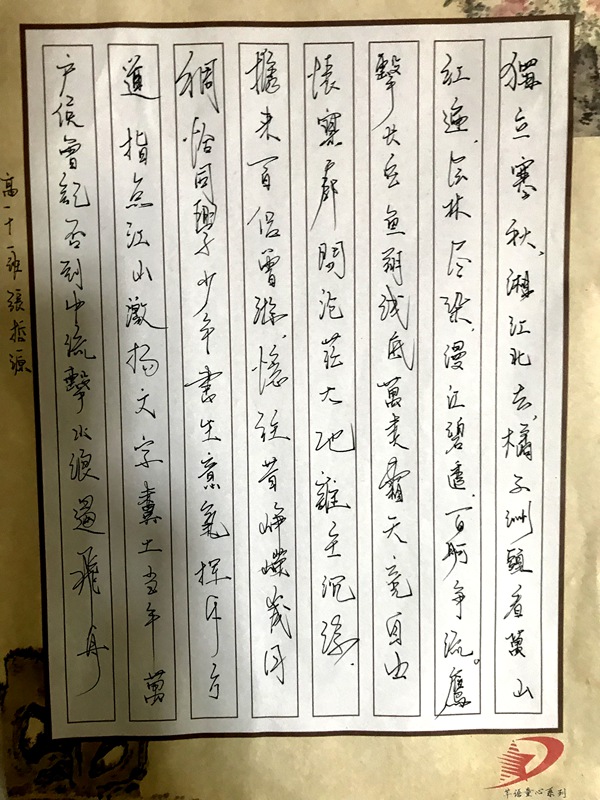 獨立寒秋,湘江北去,橘子洲頭看萬山
紅遍,层林尽染,漫江碧透,百舸争流。鷹
擊长空鱼翔浅底萬类霜天竞自由
悵寥廓問沧茫大地誰主沉浮.
攜来百侣曾游,憶往昔峥嶸歲月
稠恰同學少年書生意氣挥斥方
遒指点江山激扬文字糞土当年萬
户侯曾記否到中流擊水浪遏飛舟
高一十一班張哲源